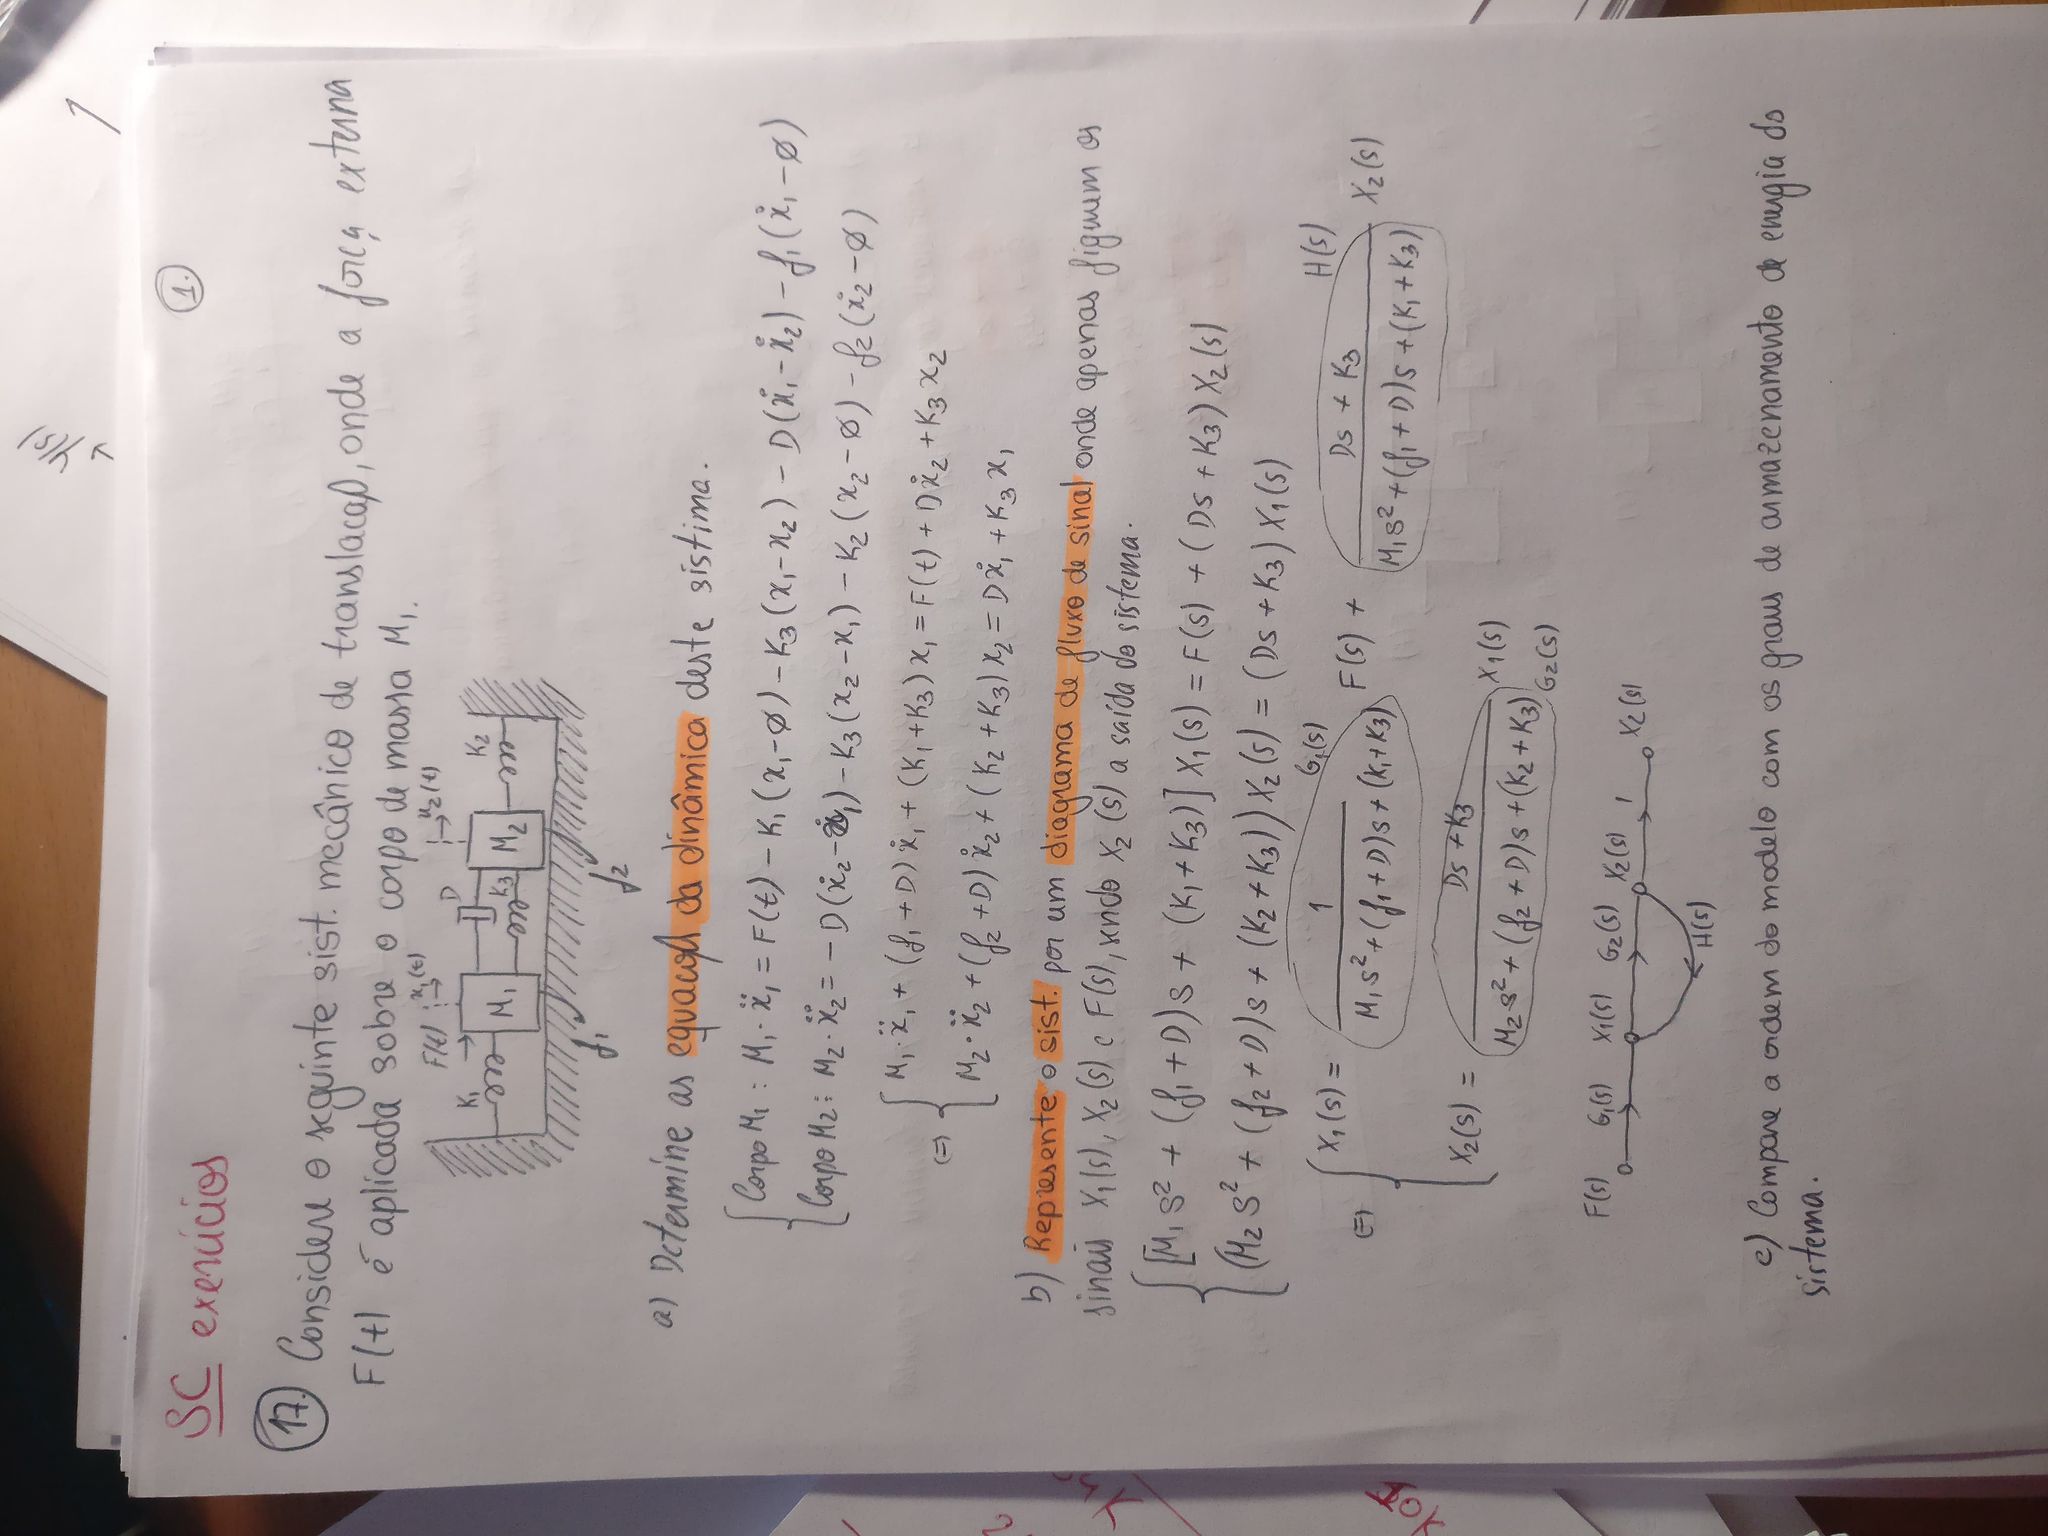 → Y(s)
1
1.
SC exercícios
17. Considere o seguinte sist. mecânico de translação, onde a força externa
F(t) é aplicada sobre o corpo de massa M₁.
F(t) x₁(t) D x₂(t)
K₁ M₁ K₃ M₂ K₂
f₁ f₂
a) Determine as equações da dinâmica deste sistima.
Corpo M₁ : M₁·ẍ₁ = F(t) – K₁(x₁-∅) – K₃(x₁-x₂) – D(ẋ₁-ẋ₂) – f₁(ẋ₁-∅)
Corpo M₂ : M₂·ẍ₂ = – D(ẋ₂-ẋ₁) – K₃(x₂-x₁) – K₂(x₂-∅) – f₂(ẋ₂-∅)
(=) M₁·ẍ₁ + (f₁+D)ẋ₁ + (K₁+K₃)x₁ = F(t) + Dẋ₂ + K₃x₂
M₂·ẍ₂ + (f₂+D)ẋ₂ + (K₂+K₃)x₂ = Dẋ₁ + K₃x₁
b) Represente o sist. por um diagrama de fluxo de sinal onde apenas figuram os
sinais X₁(s), X₂(s) e F(s), sendo X₂(s) a saída do sistema.
[M₁s² + (f₁+D)s + (K₁+K₃)] X₁(s) = F(s) + (Ds+K₃) X₂(s)
(M₂s² + (f₂+D)s + (K₂+K₃)) X₂(s) = (Ds+K₃) X₁(s)
G₁(s) H(s)
(=) X₁(s) = 1 / M₁s²+(f₁+D)s+(K₁+K₃) F(s) + Ds+K₃ / M₁s²+(f₁+D)s+(K₁+K₃) X₂(s)
X₂(s) = Ds+K₃ / M₂s²+(f₂+D)s+(K₂+K₃) X₁(s)
G₂(s)
F(s) G₁(s) X₁(s) G₂(s) X₂(s) 1 X₂(s)
H(s)
c) Compare a ordem do modelo com os graus de armazenamento de energia do
sistema.